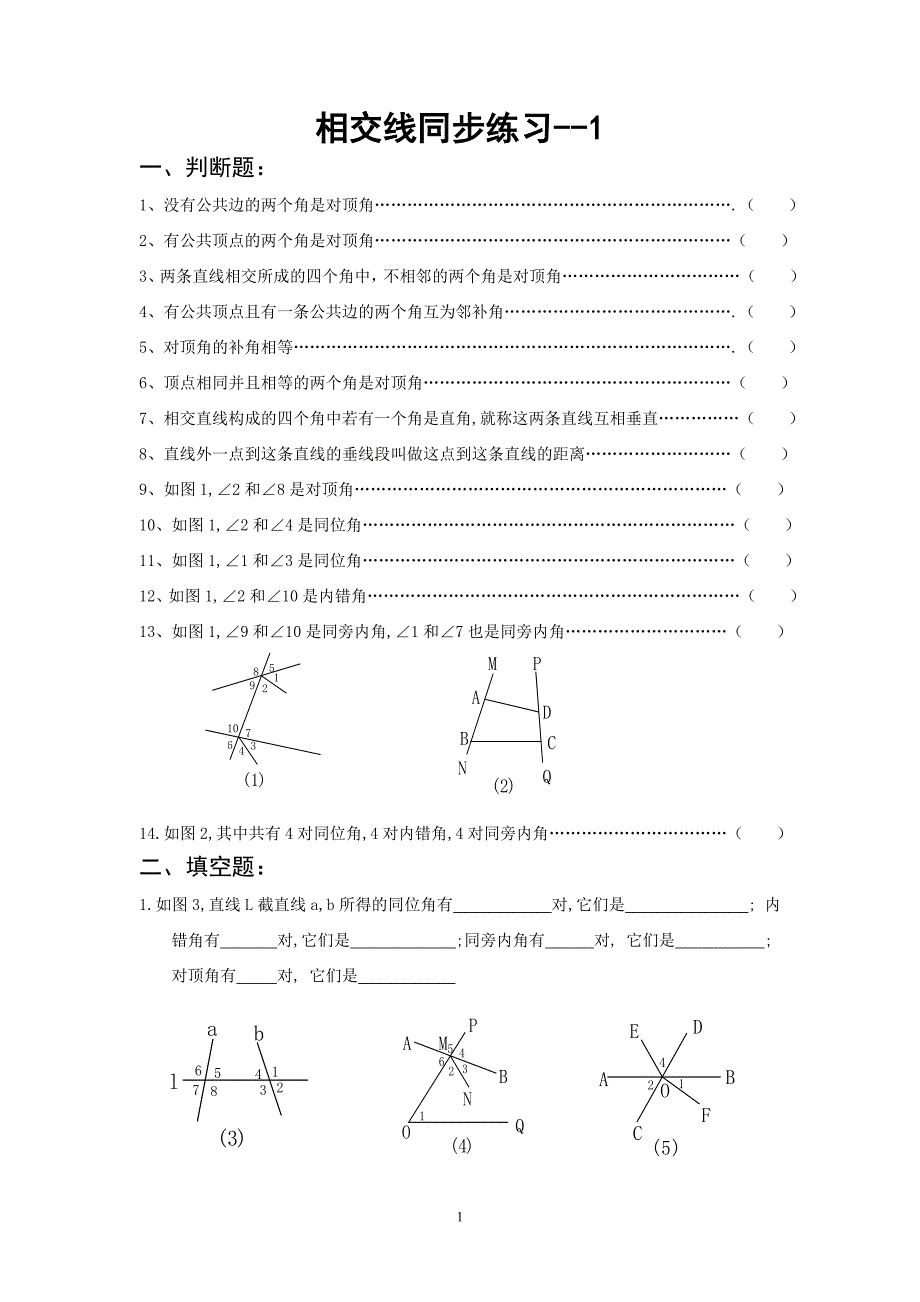 相交线同步练习--1
一、判断题:
1、没有公共边的两个角是对顶角………………………………………………………….(    )
2、有公共顶点的两个角是对顶角…………………………………………………………(    )
3、两条直线相交所成的四个角中,不相邻的两个角是对顶角……………………………(    )
4、有公共顶点且有一条公共边的两个角互为邻补角…………………………………….(    )
5、对顶角的补角相等……………………………………………………………………….(    )
6、顶点相同并且相等的两个角是对顶角…………………………………………………(    )
7、相交直线构成的四个角中若有一个角是直角,就称这两条直线互相垂直……………(    )
8、直线外一点到这条直线的垂线段叫做这点到这条直线的距离………………………(    )
9、如图1,∠2和∠8是对顶角……………………………………………………………(    )
10、如图1,∠2和∠4是同位角……………………………………………………………(    )
11、如图1,∠1和∠3是同位角……………………………………………………………(    )
12、如图1,∠2和∠10是内错角……………………………………………………………(    )
13、如图1,∠9和∠10是同旁内角,∠1和∠7也是同旁内角…………………………(    )
8 5 1 9 2 10 7 6 4 3
(1)
M P A D B C N Q
(2)
14.如图2,其中共有4对同位角,4对内错角,4对同旁内角……………………………(    )
二、填空题:
1.如图3,直线L截直线a,b所得的同位角有____________对,它们是_______________; 内
错角有_______对,它们是_____________;同旁内角有______对, 它们是___________;
对顶角有_____对, 它们是____________
a b l 6 5 4 1 7 8 3 2
(3)
A M P 5 4 6 2 3 B N O 1 Q
(4)
E D 4 A 2 O 1 B C F
(5)
1